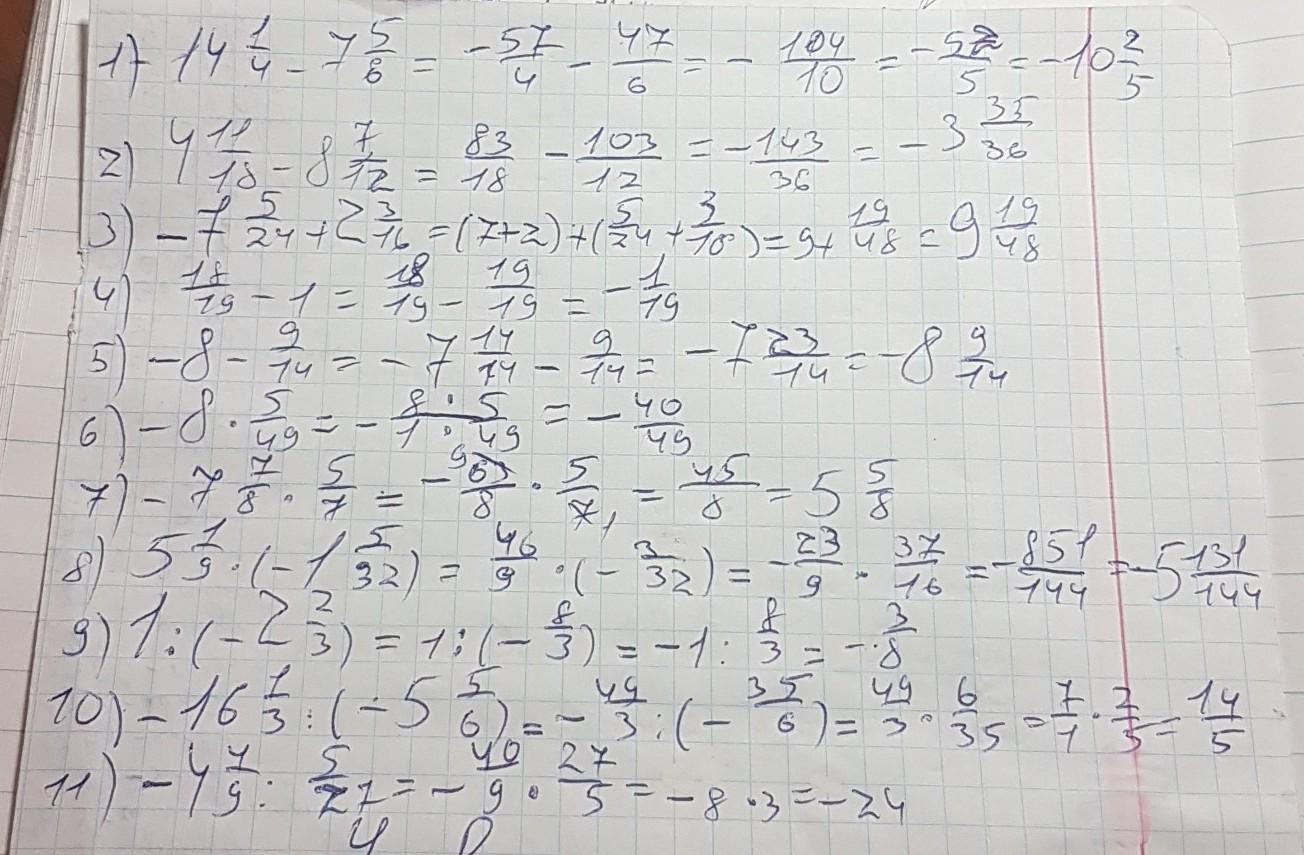 1) - 14 1/4 - 7 5/6 = - 57/4 - 47/6 = - 104/10 = - 52/5 = - 10 2/5
2) 4 11/18 - 8 7/12 = 83/18 - 103/12 = - 143/36 = - 3 35/36
3) - 7 5/24 + 2 3/16 = (7+2) + (5/24 + 3/16) = 9 + 19/48 = 9 19/48
4) 18/19 - 1 = 18/19 - 19/19 = - 1/19
5) - 8 - 9/14 = - 7 14/14 - 9/14 = - 7 23/14 = - 8 9/14
6) - 8 · 5/49 = - 8 · 5/1 · 49 = - 40/49
7) - 7 7/8 · 5/7 = - 63/8 · 5/7 = 45/8 = 5 5/8
8) 5 1/9 · (- 1 5/32) = 46/9 · (- 3/32) = - 23/9 · 37/16 = - 851/144 = - 5 131/144
9) 1 : (- 2 2/3) = 1 : (- 8/3) = - 1 : 8/3 = - 3/8
10) - 16 1/3 : (- 5 5/6) = - 49/3 : (- 35/6) = 49/3 · 6/35 = 7/1 · 2/5 = 14/5
11) - 4 4/9 : 5/27 = - 40/9 · 27/5 = - 8 · 3 = - 24